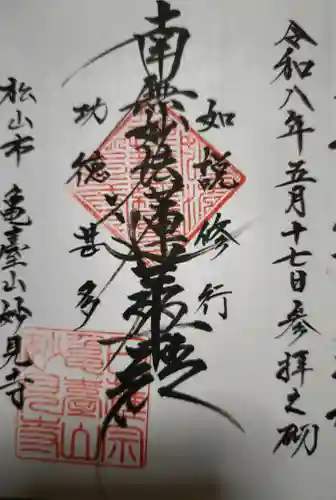 令和八年五月十七日参拝之砌
如説修行
南無妙法蓮華経
功徳甚多
松山市 亀臺山妙見寺
日蓮宗
亀臺山
妙見寺